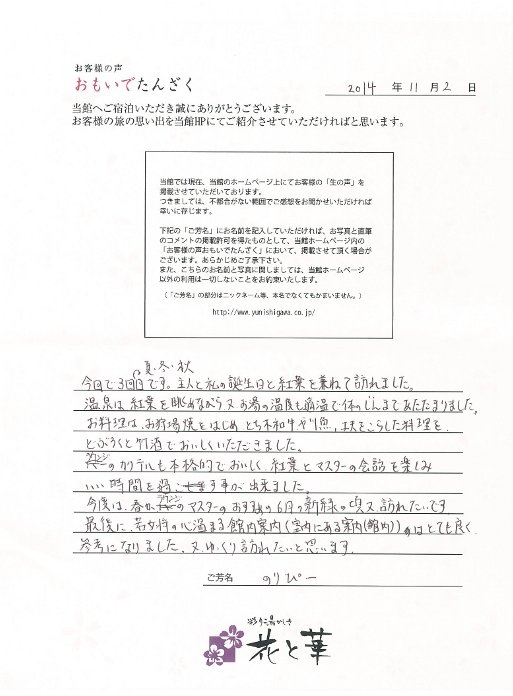 お客様の声
おもいでたんざく
2014 年 11 月 2 日
当館へご宿泊いただき誠にありがとうございます。
お客様の旅の思い出を当館HPにてご紹介させていただければと思います。
当館では現在、当館のホームページ上にてお客様の「生の声」を
掲載させていただいております。
つきましては、不都合がない範囲でご感想をお聞かせいただければ
幸いに存じます。
下記の「ご芳名」にお名前を記入していただければ、お写真と直筆
のコメントの掲載許可を得たものとして、当館ホームページ内の
「お客様の声おもいでたんざく」において、掲載させて頂く場合が
ございます。あらかじめご了承下さい。
また、こちらのお名前と写真に関しましては、当館ホームページ
以外の利用は一切しないことをお約束いたします。
（「ご芳名」の部分はニックネーム等、本名でなくてもかまいません。）
http://www.yunishigawa.co.jp/
夏・冬・秋
今回で3回目です。主人と私の誕生日と紅葉を兼ねて訪れました。
温泉は紅葉を眺めながら又お湯の温度も適温で体のしんまであたたまりました。
お料理は、お狩場焼をはじめ とち木和牛や川魚、工夫をこらした料理を、
どぶろくと竹酒でおいしくいただきました。
ラウンジのカクテルも本格的でおいしく、紅葉とマスターの会話を楽しみ
いい時間を過ごす事が出来ました。
今度は、春かラウンジのマスターのおすすめの6月の新緑の頃又訪れたいです。
最後に、若女将の心温まる館内案内(室内にある案内(館内))はとても良く
参考になりました、又ゆっくり訪れたいと思います。
ご芳名 のりぴー
彩り湯かしき
花と華